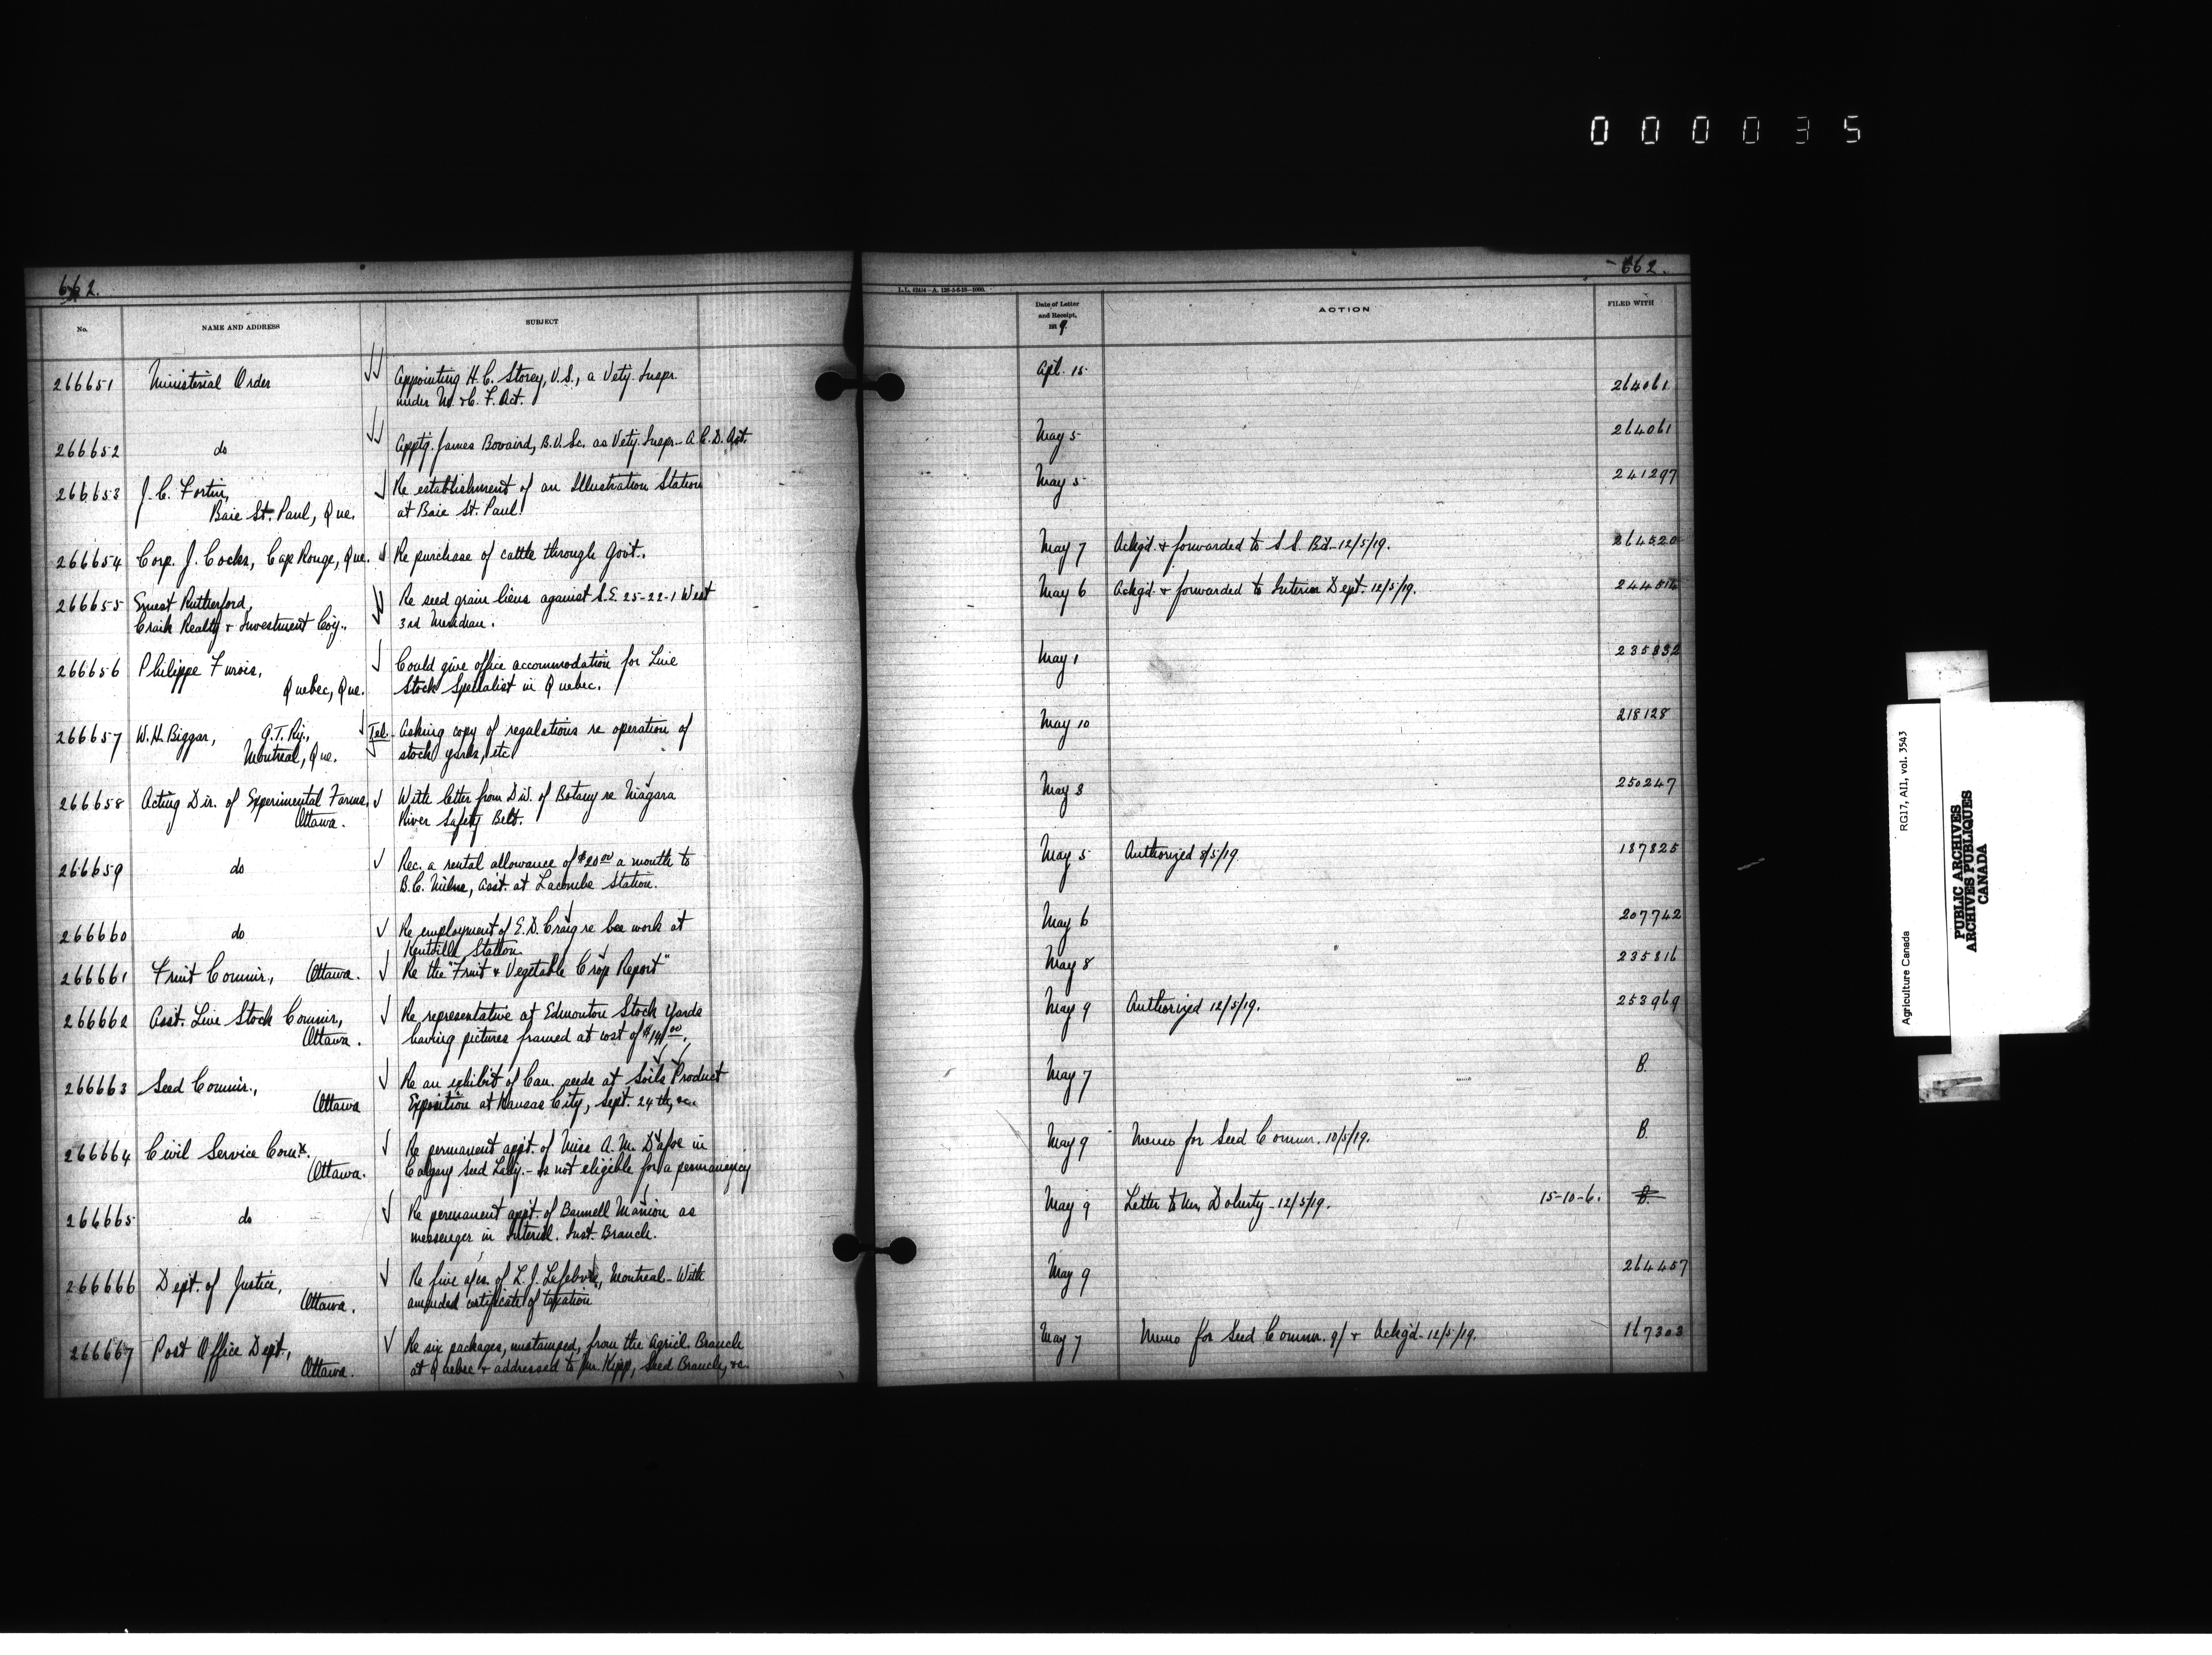 000035
662.
No.
NAME AND ADDRESS
SUBJECT
266651 Ministerial Order Appointing H.C. Storey, V.S., a Vety. Inspr.
under M. & C. F. Act.
266652 do Apptg. James Bovaird, B.V.Sc. as Vety. Inspr. A.C.D. Act.
266653 J.C. Fortin, Re establishment of an Illustration Station
Baie St. Paul, Que. at Baie St. Paul.
266654 Corp. J. Cocks, Cap Rouge, Que. Re purchase of cattle through Govt.
266655 Ernest Rutherford, Re seed grain liens against S.E. 25-22-1 West
Craik Realty & Investment Coy. 3rd Meridian.
266656 Philippe Furois, Could give office accommodation for Live
Quebec, Que. Stock Specialist in Quebec.
266657 W.H. Biggar, G.T. Ry., Tel. Asking copy of regulations re operation of
Montreal, Que. stock yards, etc
266658 Acting Dir. of Experimental Farms, With letter from Div. of Botany re Niagara
Ottawa. River Safety Belt.
266659 do Rec. a rental allowance of $20.00 a month to
B.C. Milne, Asst. at Lacombe Station.
266660 do Re employment of E.D. Craig re bee work at
Kentville Station.
266661 Fruit Commr., Ottawa. Re the "Fruit & Vegetable Crop Report"
266662 Asst. Live Stock Commr, Re representative at Edmonton Stock Yards
Ottawa. having pictures framed at cost of
266663 Seed Commr., Re an exhibit of Can. seeds at Soils Product
Ottawa Exposition at Kansas City, Sept. 24th, &c.
266664 Civil Service Com. Re permanent appt. of Miss A.M. Dafoe in
Ottawa. Calgary Seed Laby. - Is not eligible for a permanency
266665 do Re permanent appt. of Bannell Manion as
messenger in Internl. Inst. Branch.
266666 Dept. of Justice, Re five a/cs. of L.J. Lefebvre, Montreal - With
Ottawa. amended certificate of taxation
266667 Post Office Dept, Re six packages, unstamped, from the Agricl. Branch
Ottawa. at Quebec & addressed to Mr. Kipp, Seed Branch, &c.
662.
L.L.
Date of Letter
and Receipt,
1919
ACTION
FILED WITH
Apl. 15 264061
May 5 264061
May 5 241297
May 7 Ackg'd & forwarded to S.S. Bd. 12/5/19. 264520
May 6 Ackg'd & forwarded to Interior Dept. 12/5/19.
May 1 235332
May 10 218128
May 3 250247
May 5 Authorized 8/5/19 187825
May 6 207742
May 8 235816
May 9 Authorized 12/5/19. 253969
May 7 B.
May 9 Memo for Seed Commr. 10/5/19. B.
May 9 Letter to Mr. Doherty - 12/5/19. 15-10-6. B.
May 9 264457
May 7 Memo for Seed Commr. 9/ & Ackg'd - 12/5/19. 167303
Agriculture Canada
RG17, AI1, vol. 3543
PUBLIC ARCHIVES
ARCHIVES PUBLIQUES
CANADA